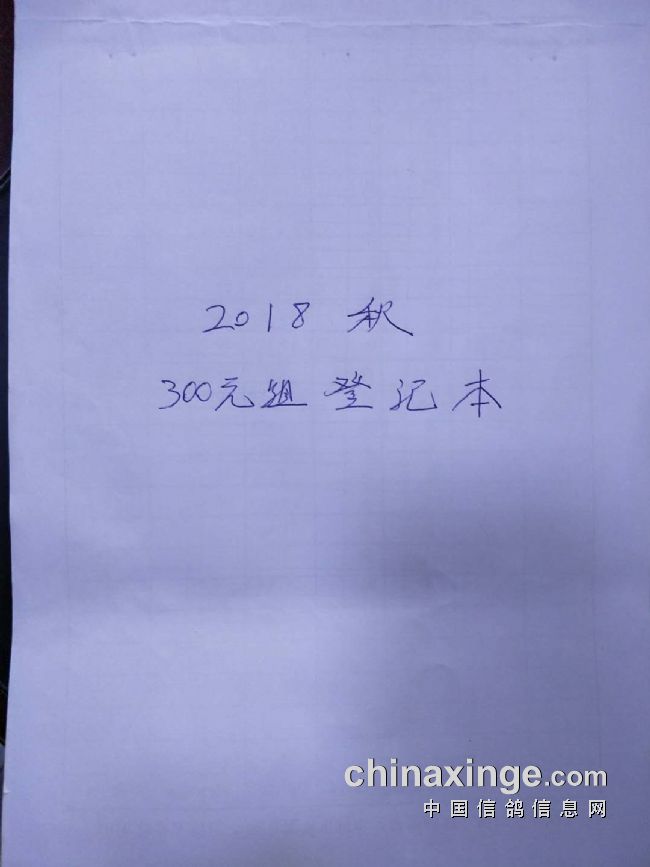 2018 秋
300元组 登记本
chinaxinge.com
中国信鸽信息网